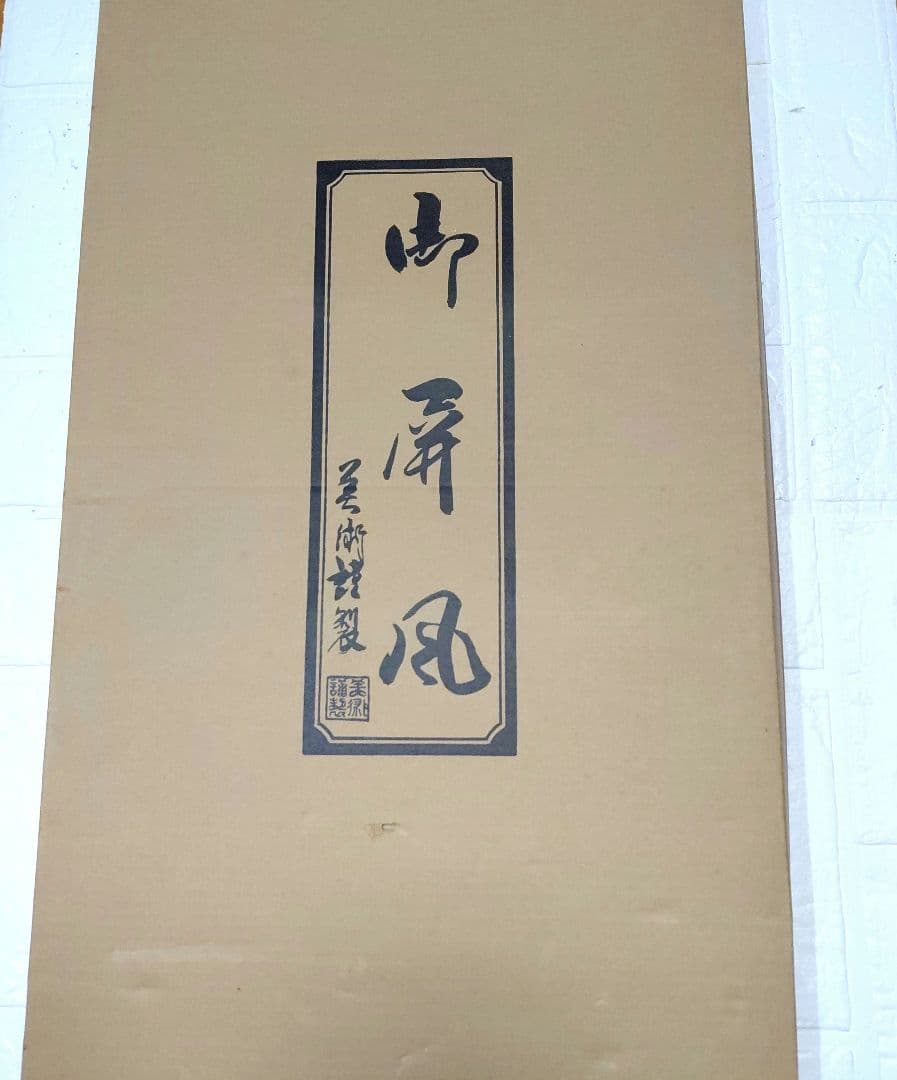 御屏風
美術謹製
美術謹製